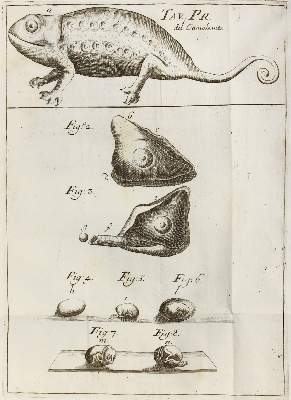 a
TAV. PR.
del Camaleonte
Fig. 2.
b
c
Fig. 3.
g
f
Fig. 4.
h
Fig. 5.
i
Fig. 6
l
Fig. 7
m
Fig. 8.
n